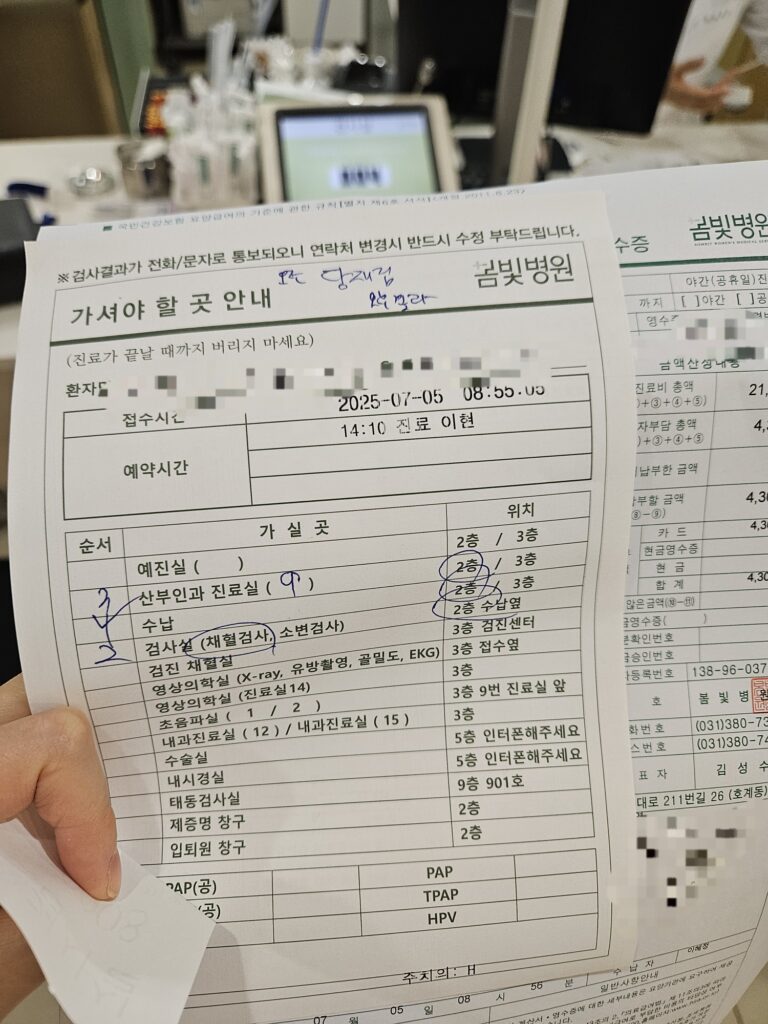 국민건강보험 요양급여의 기준에 관한 규칙[별지 제6호 서식]
※검사결과가 전화/문자로 통보되오니 연락처 변경시 반드시 수정 부탁드립니다.
가셔야 할 곳 안내
봄빛병원
(진료가 끝날 때까지 버리지 마세요)
접수시간 2025-07-05 08:55:05
예약시간 14:10 진료 이현
순서 가 실 곳 위치
예진실 ( ) 2층 / 3층
3 산부인과 진료실 ( 9 ) 2층 / 3층
수납 2층 / 3층
2 검사실 (채혈검사, 소변검사) 2층 수납옆
검진 채혈실 3층 검진센터
영상의학실 (X-ray, 유방촬영, 골밀도, EKG) 3층 접수옆
영상의학실 (진료실14) 3층
초음파실 ( 1 / 2 ) 3층 9번 진료실 앞
내과진료실 ( 12 ) / 내과진료실 ( 15 ) 3층
수술실 5층 인터폰해주세요
내시경실 5층 인터폰해주세요
태동검사실 9층 901호
제증명 창구 2층
입퇴원 창구 2층
PAP(공) PAP
(공) TPAP
HPV
주치의: H
수증
봄빛병원
야간(공휴일)진
까지 [ ]야간 [ ]공
금액산정내용
진료비 총액 21,
+③+④+⑤)
자부담 총액
+③+④+⑤)
납부한 금액
부할 금액 4,30
카 드 4,30
현금영수증
현 금
합 계 4,30
않은금액
금영수증( )
분확인번호
금승인번호
등록번호 138-96-037
호 봄 빛 병 원
화번호 (031)380-73
스번호 (031)380-74
표 자 김 성 수
대로 211번길 26 (호계동)
수 납 자 이혜정
07 월 05 일 08 시 56 분
일반사항안내